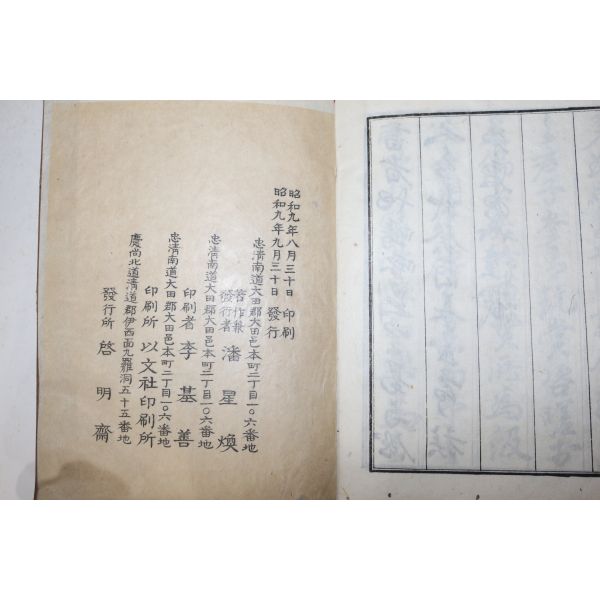 昭和九年八月三十日 印刷
昭和九年九月三十日 發行
忠淸南道大田郡大田邑本町二丁目一〇六番地
著作兼發行者 潘星煥
忠淸南道大田郡大田邑本町二丁目一〇六番地
印刷者 李基善
忠淸南道大田郡大田邑本町二丁目一〇六番地
印刷所 以文社印刷所
慶尚北道淸道郡伊西面九羅洞五十五番地
發行所 啓明齋